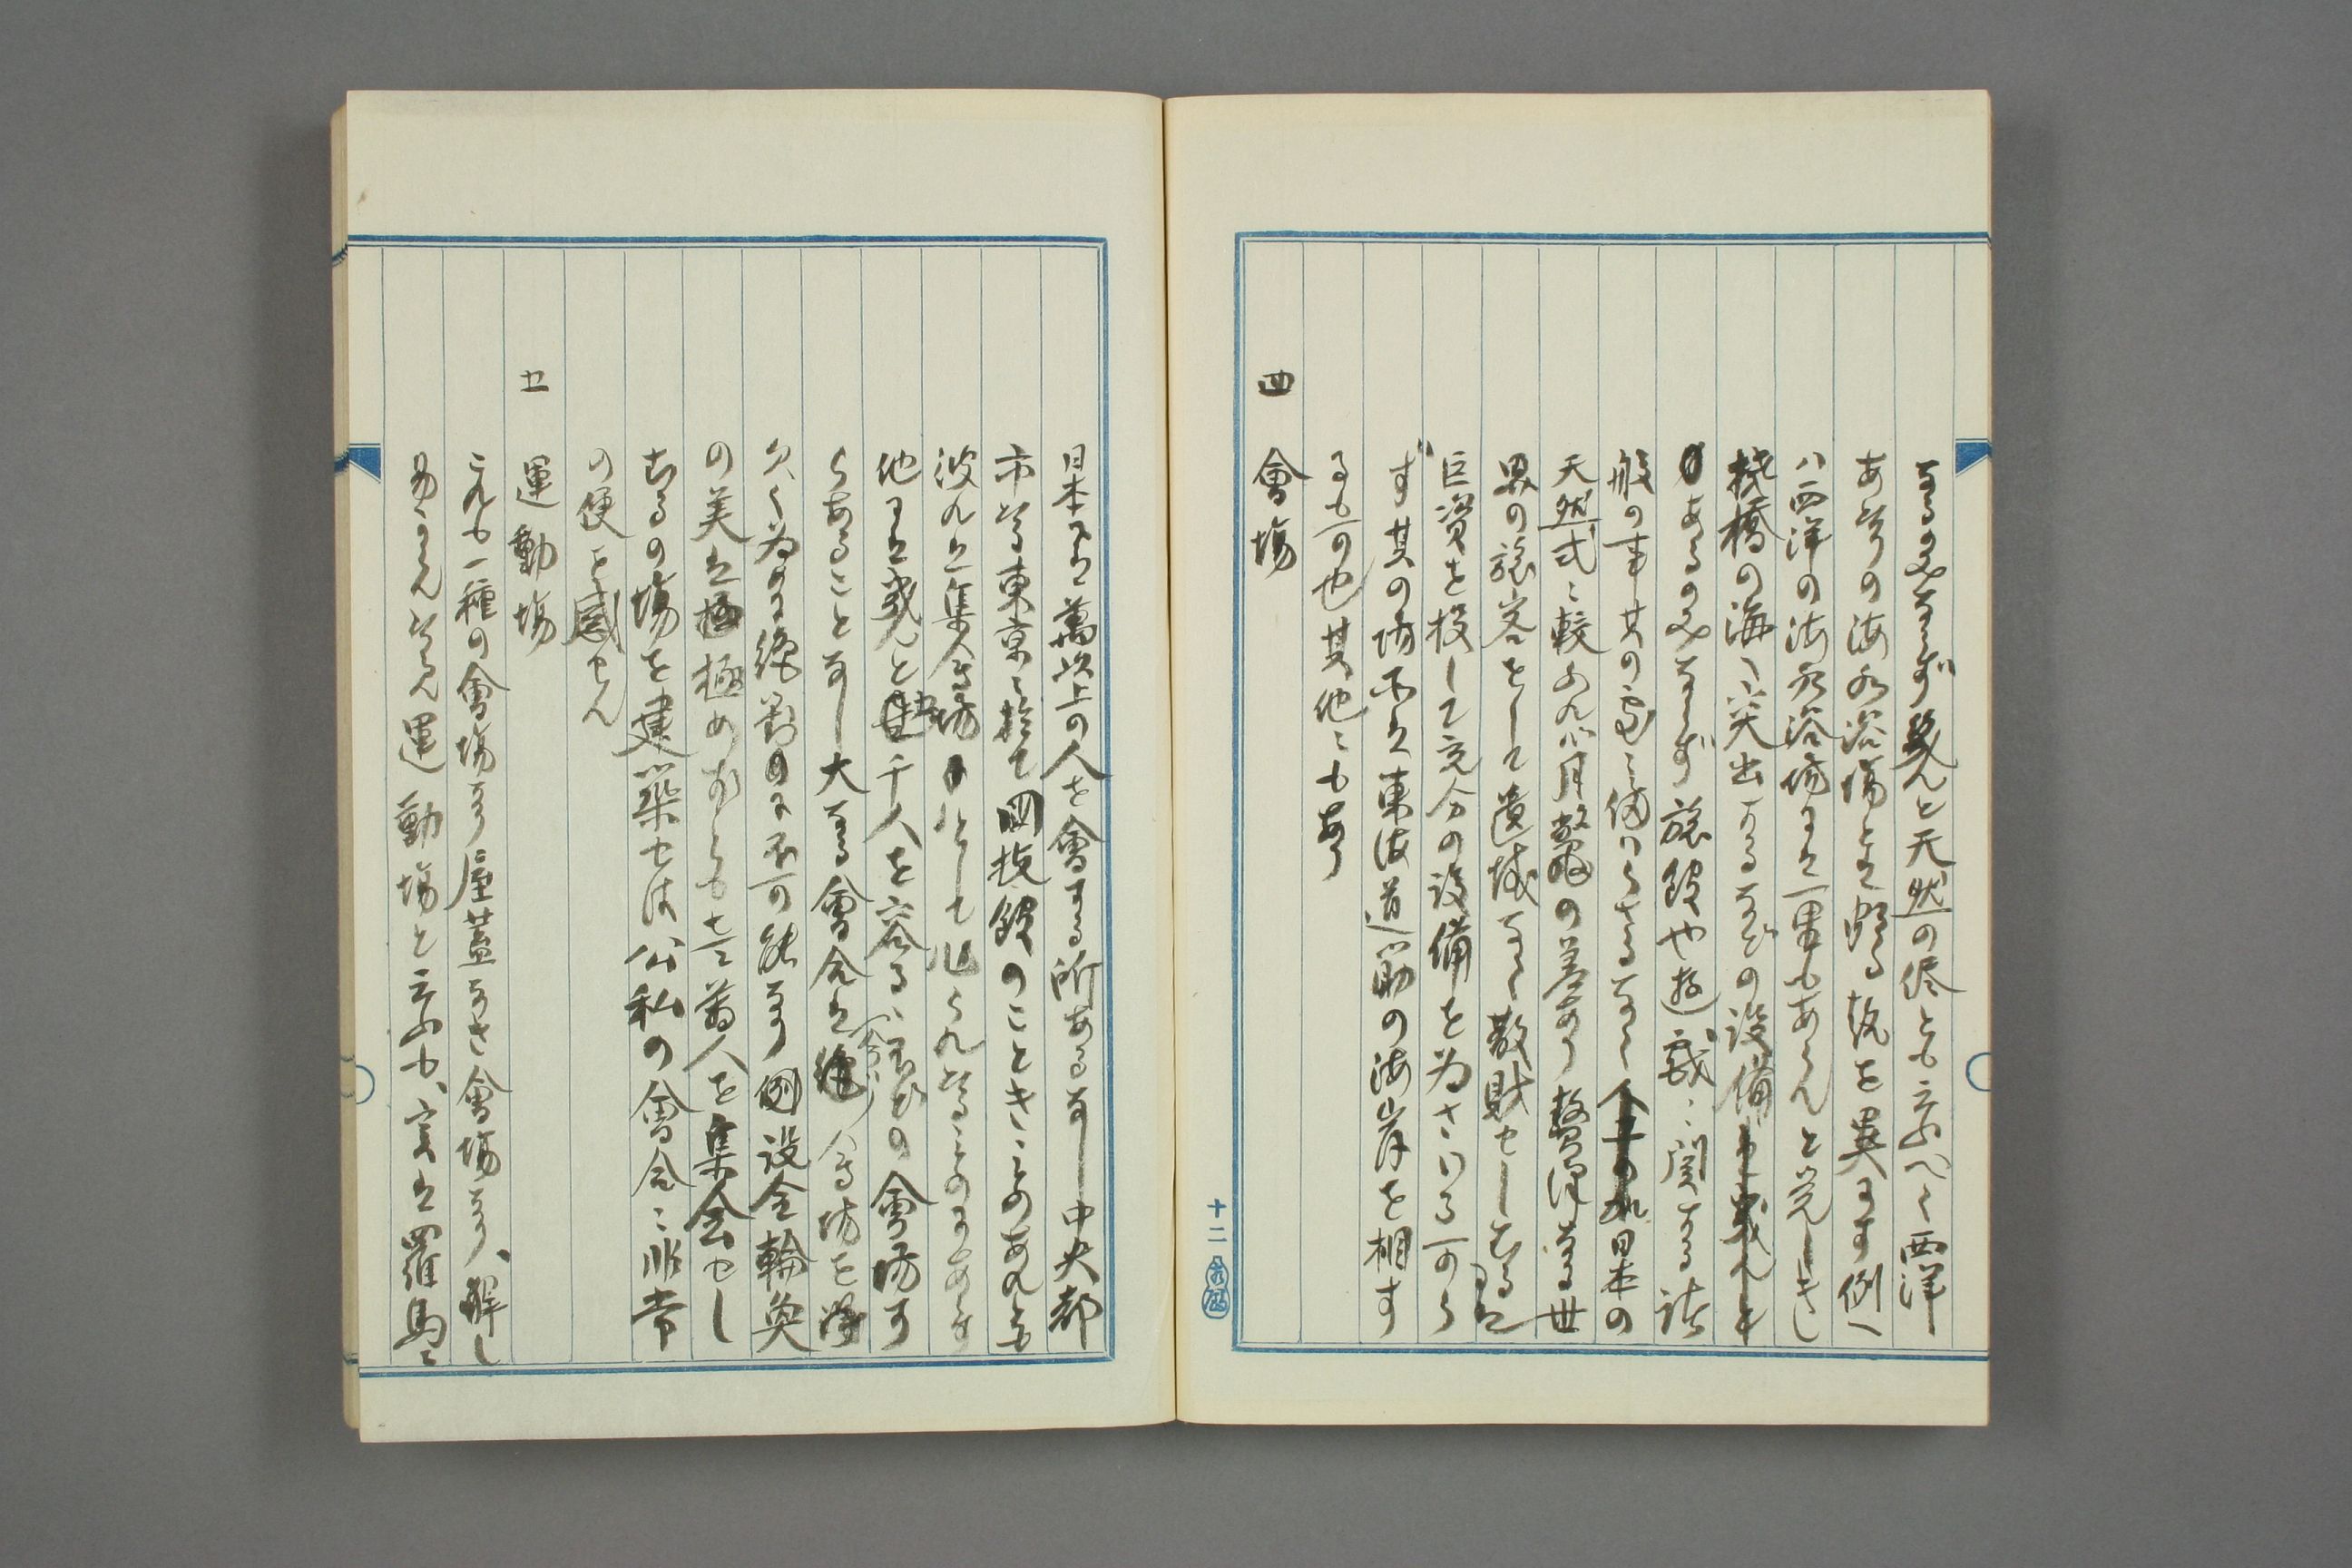 なるのみならず殆んと天然の侭とも云ふべく西洋
あたりの海水浴場とは頗る趣を異にす例へ
ハ西洋の海水浴場には一里もあらんと覚しき
桟橋の海へ突出せるなどの設備
あるのみならず旅館や遊戯に関する諸
般の事其の家に備わらざるなく日本の
天然式に較ふれハ月鼈の差あり贅沢なる世
界の旅客をして遺域なく散財せしむるには
巨資を投して充分の設備を為さゝる可ら
ず其の場所は東海道筋の海岸を相す
るも可也其他にもあり
四 會場
日本には萬以上の人を會する所あるなし中央都
市たる東京に於て国技館のごときことのあれとも
彼れは集会場として作られたることのにあらす
他には殆んと数千人を容るゝほどの會場す
らあることなし大なる會合は會場を
欠く為めに絶對的に不可能なり例設令輪奐
の美は極めずとも幾万人を集会せし
むるの場を建築せは公私の會合に非常
の便を感せん
五 運動場
これも一種の會場なり屋蓋なき會場なり、解し
易からんため運動場と云ふも、実は羅馬に
十二